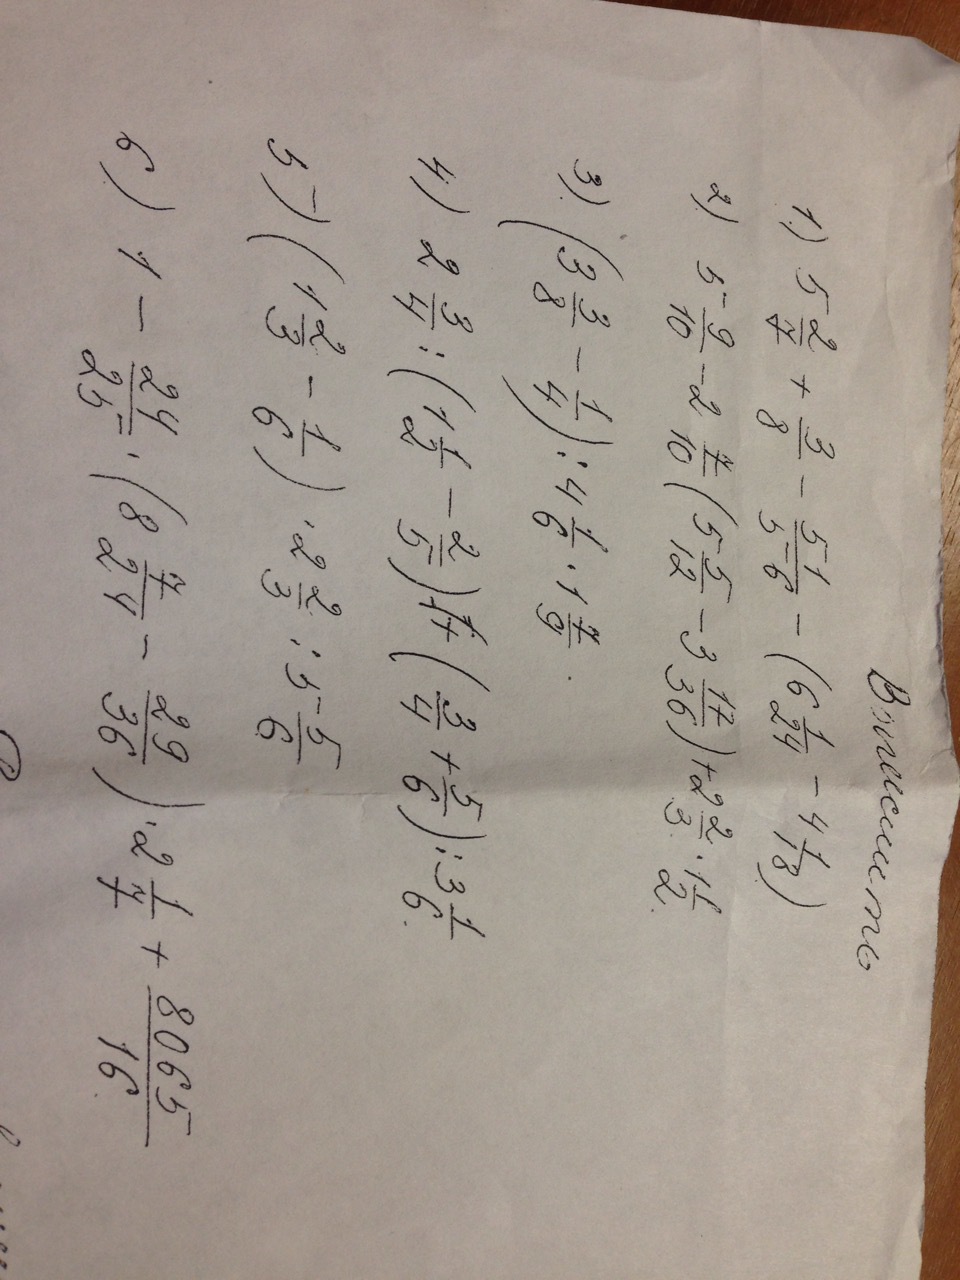 Вычислить
1.) 5 2/7 + 3/8 - 51/56 - (6 1/24 - 4 1/18)
2) 5 9/10 - 2 7/10 (5 5/12 - 3 17/36) + 2 2/3 · 1 1/2.
3) (3 3/8 - 1/4) : 4 1/6 · 1 7/9.
4) 2 3/4 : (1 1/2 - 2/5) + (3/4 + 5/6) : 3 1/6.
5) (1 2/3 - 1/6) · 2 2/3 : 5 5/6
6) 1 - 24/25 · (8 7/24 - 29/36) · 2 1/7 + 8065/16